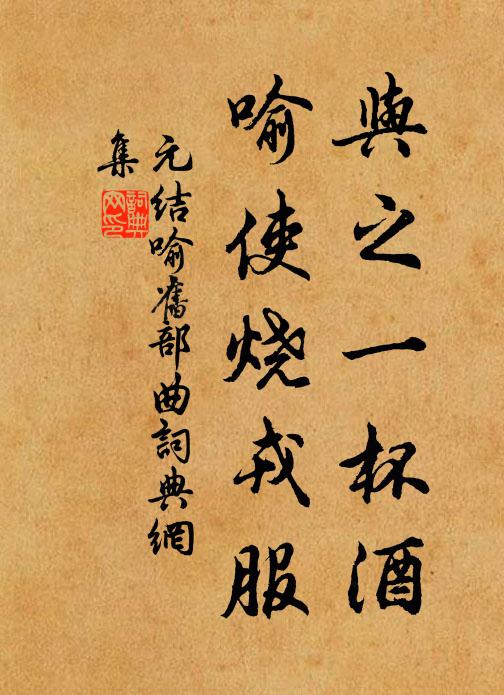 與之一杯酒
喻使燒戎服
元结喻舊部曲詞典網
集
詞典
网印